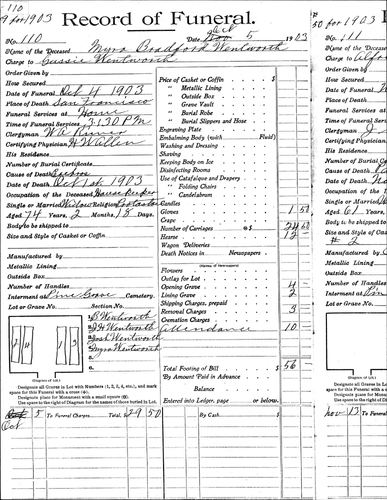 110
9 for 1903
Record of Funeral.
No. 110 Date Oct 5 1903
Name of the Deceased Myra Bradford Wentworth
Charge to Cassie Wentworth
Order Given by
How Secured
Date of Funeral Oct 4 1903
Place of Death San Francisco
Funeral Services at Home
Time of Funeral Services 3:30 PM
Clergyman W A
Certifying Physician H Wallen
His Residence
Number of Burial Certificate
Cause of Death
Date of Death Oct 1st 1903
Occupation of the Deceased House Keeper
Single or Married Widow Religion Protestant
Aged 74 Years, 2 Months, 18 Days.
Body to be shipped to
Size and Style of Casket or Coffin
Manufactured by
Metallic Lining
Outside Box
Number of Handles
Interment at Pine Grove Cemetery.
Lot or Grave No. Section No.
Wentworth
J H Wentworth
Josh Wentworth
Myra Wentworth
(Diagram of Lot)
Designate all Graves in Lot with Numbers (1, 2, 3, 4, etc.), and mark
space for this Funeral with a cross
Designate place for Monument with a small square
Use space to the right of Diagram for the names of those buried in Lot.
Price of Casket or Coffin
" Metallic Lining
" Outside Box
" Grave Vault
" Burial Robe
" Burial Slippers and Hose
Engraving Plate
Embalming Body (with Fluid)
Washing and Dressing
Shaving
Keeping Body on Ice
Disinfecting Rooms
Use of Catafalque and Drapery
" Folding Chairs
" Candelabrum
Candles
Gloves 1 50
Crape
Number of Carriages 24
Hearse 12
Wagon Deliveries
Death Notices in Newspapers
Flowers
Outlay for Lot
Opening Grave 4
Lining Grave 2
Shipping Charges, prepaid
Removal Charges 3
Cremation Charges
Attendance 10
Total Footing of Bill $ 56
By Amount Paid in Advance
Balance
Entered into Ledger, page or below.
Oct 5 To Funeral Charges Total, $29 50 By Cash $
50 for 1903
No. 111
Name of the
Charge to
Order Given
How Secured
Date of Funeral
Place of Death
Funeral Services
Time of Funeral
Clergyman J
Certifying Physician
His Residence
Number of Burial
Cause of Death
Date of Death
Occupation of the
Single or Married
Aged 61 Years
Body to be shipped
Size and Style of
# 2
Manufactured by
Metallic Lining
Outside Box
Number of Handles
Interment at
Lot or Grave No.
(Diagram of Lot)
Nov 13 To Funeral